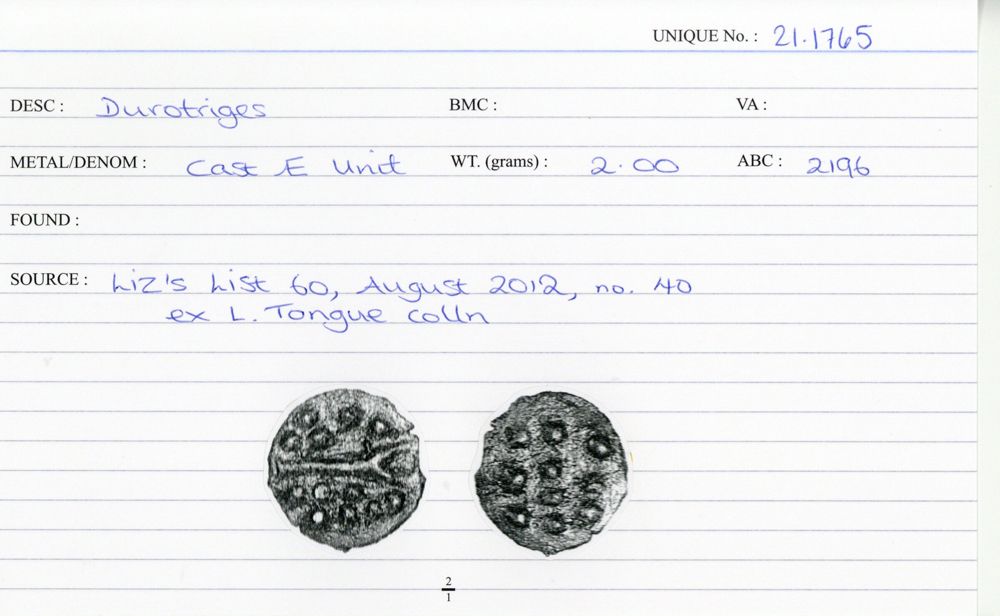 UNIQUE No. : 21.1765
DESC : Durotriges BMC : VA :
METAL/DENOM : Cast Æ Unit WT. (grams) : 2.00 ABC : 2196
FOUND :
SOURCE : Liz's List 60, August 2012, no. 40
ex L. Tongue colln
2
1